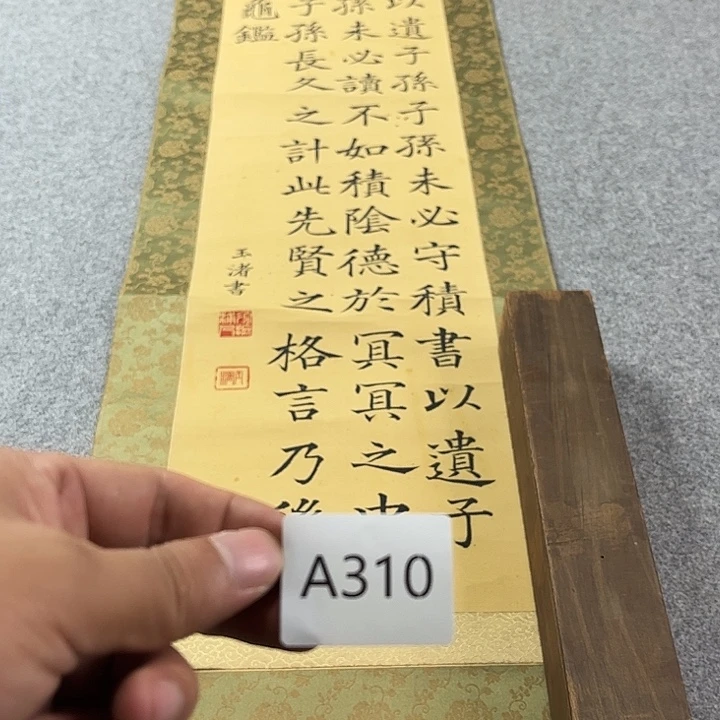 以遺子孫子孫未必守積書以遺子
孫未必讀不如積陰德於冥冥之中
子孫長久之計此先賢之格言乃後
龜鑑
玉渚書
A310